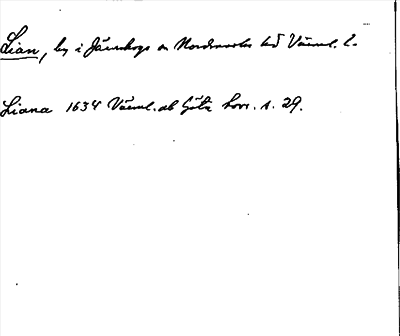 Lian, by i Järnskogs sn Nordmarks hd Värml. l.
Liana 1634 Värml. ab Götz
s. 29.